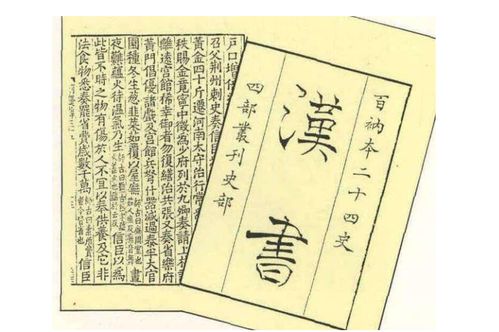 百衲本二十四史
漢書
四部叢刊史部
戶口增倍
召父荆州刺史奏
黃金四十斤遷河南太守治行常
秩賜金竟寧中徵為少府列於九卿奏請上林
離遠宮館稀幸者勿復繕治共張又奏省樂府
黃門倡優諸戲及宮館兵弩什器減過泰半太官
園種冬生葱韭菜茹覆以屋廡 晝
夜㸐蘊火待溫氣乃生 信臣以為
此皆不時之物有傷於人不宜以奉供養及它非
法食物悉奏罷省費歲數千萬 信臣